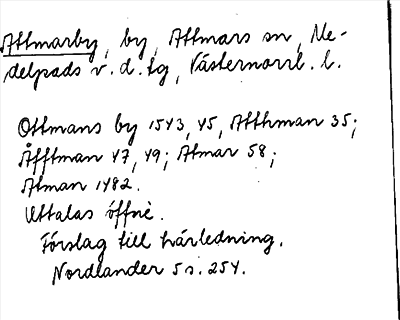 Attmarby, by, Attmars sn, Me-
delpads v. d. tg, Västernorrl. l.
Ottmans by 1543, 45, Atthman 35;
Åfftman 47, 49; Atmar 58;
Atman 1482.
Uttalas öffne.
Förslag till härledning.
Nordlander 5 s. 254.